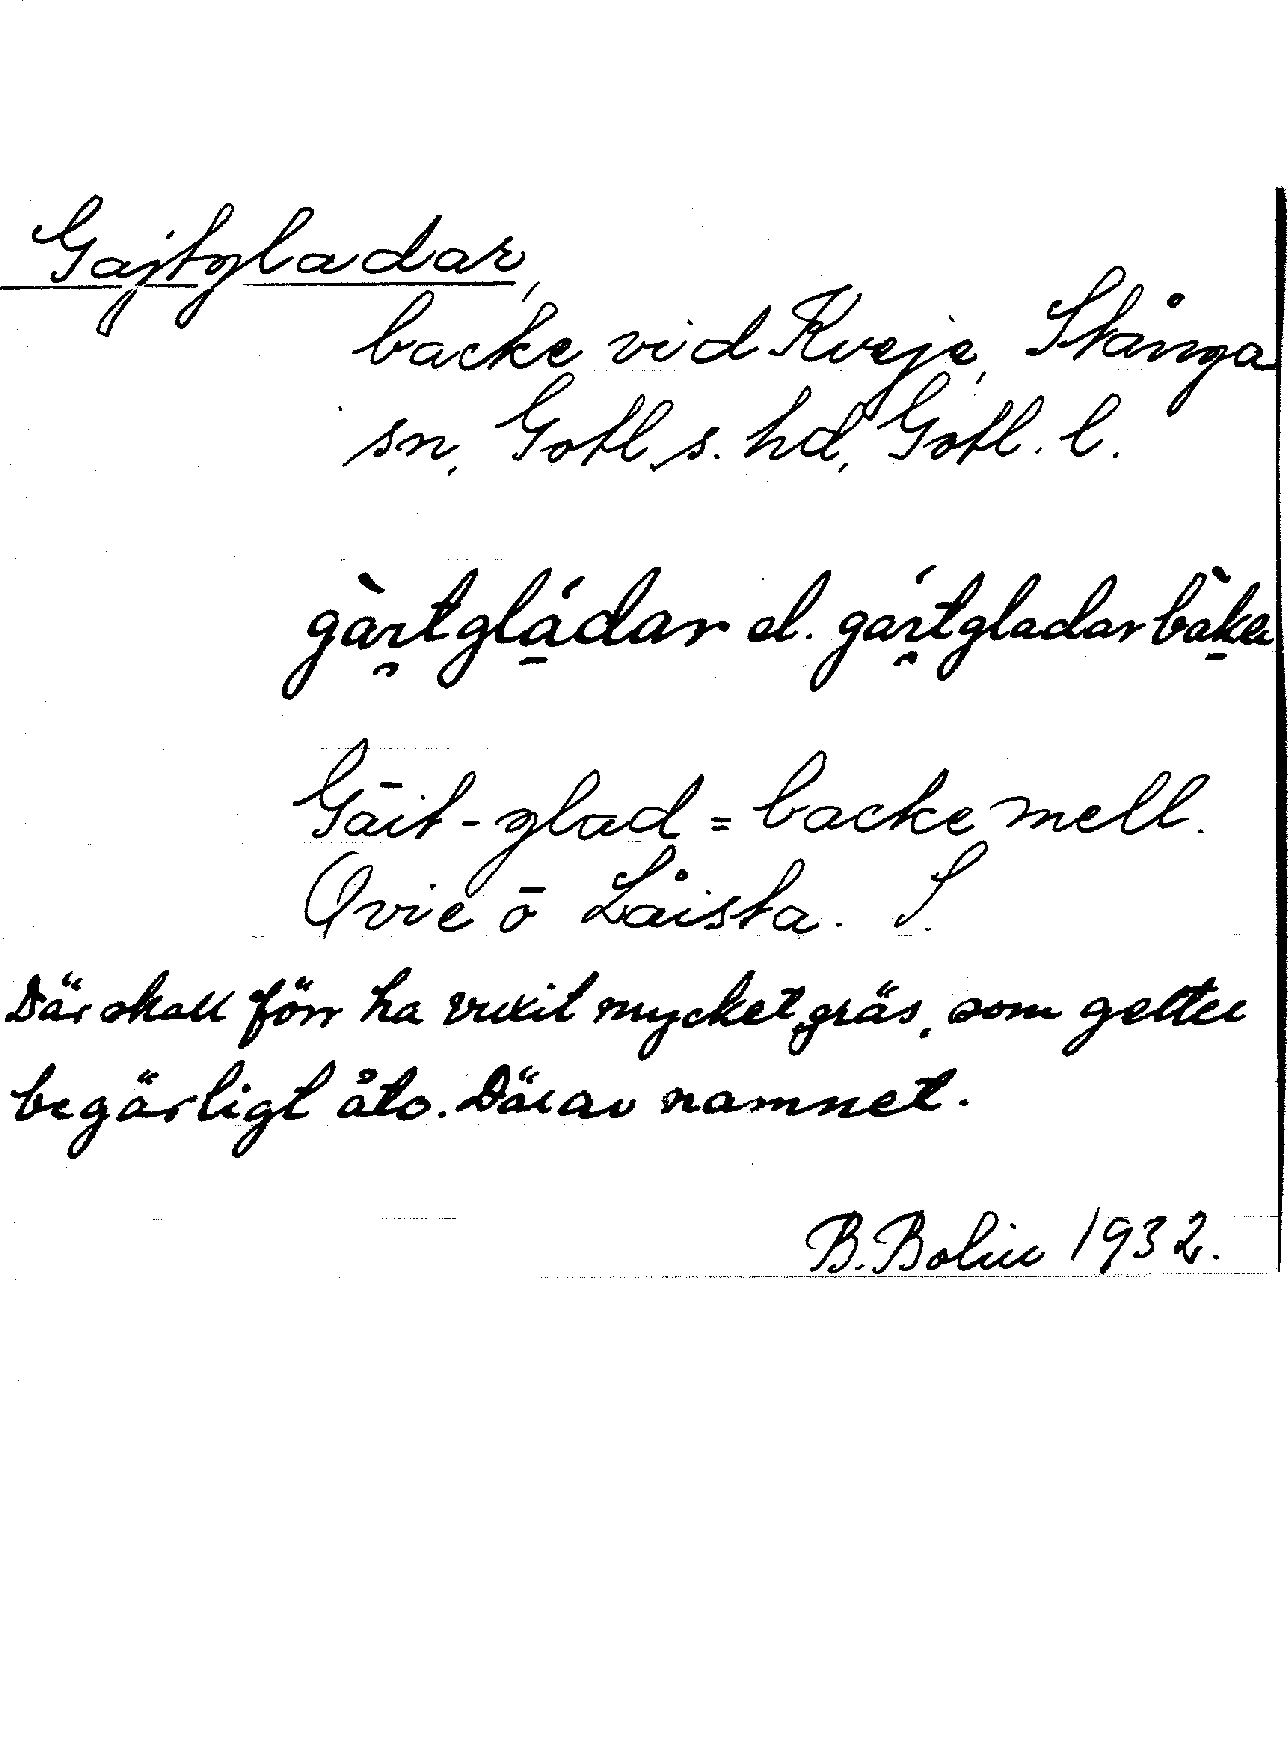 Gajtgladar,
backe vid Kveje, Stånga
sn, Gotl. s. hd, Gotl. l.
gàɪ̯tgládar el. gáɪ̯tgladarbàkɐ
Gāit-glad = backe mell.
Qvie ō Låista. S.
Där skall förr ha vuxit mycket gräs, som getter
begärligt åto. Därav namnet.
B. Bolin 1932.